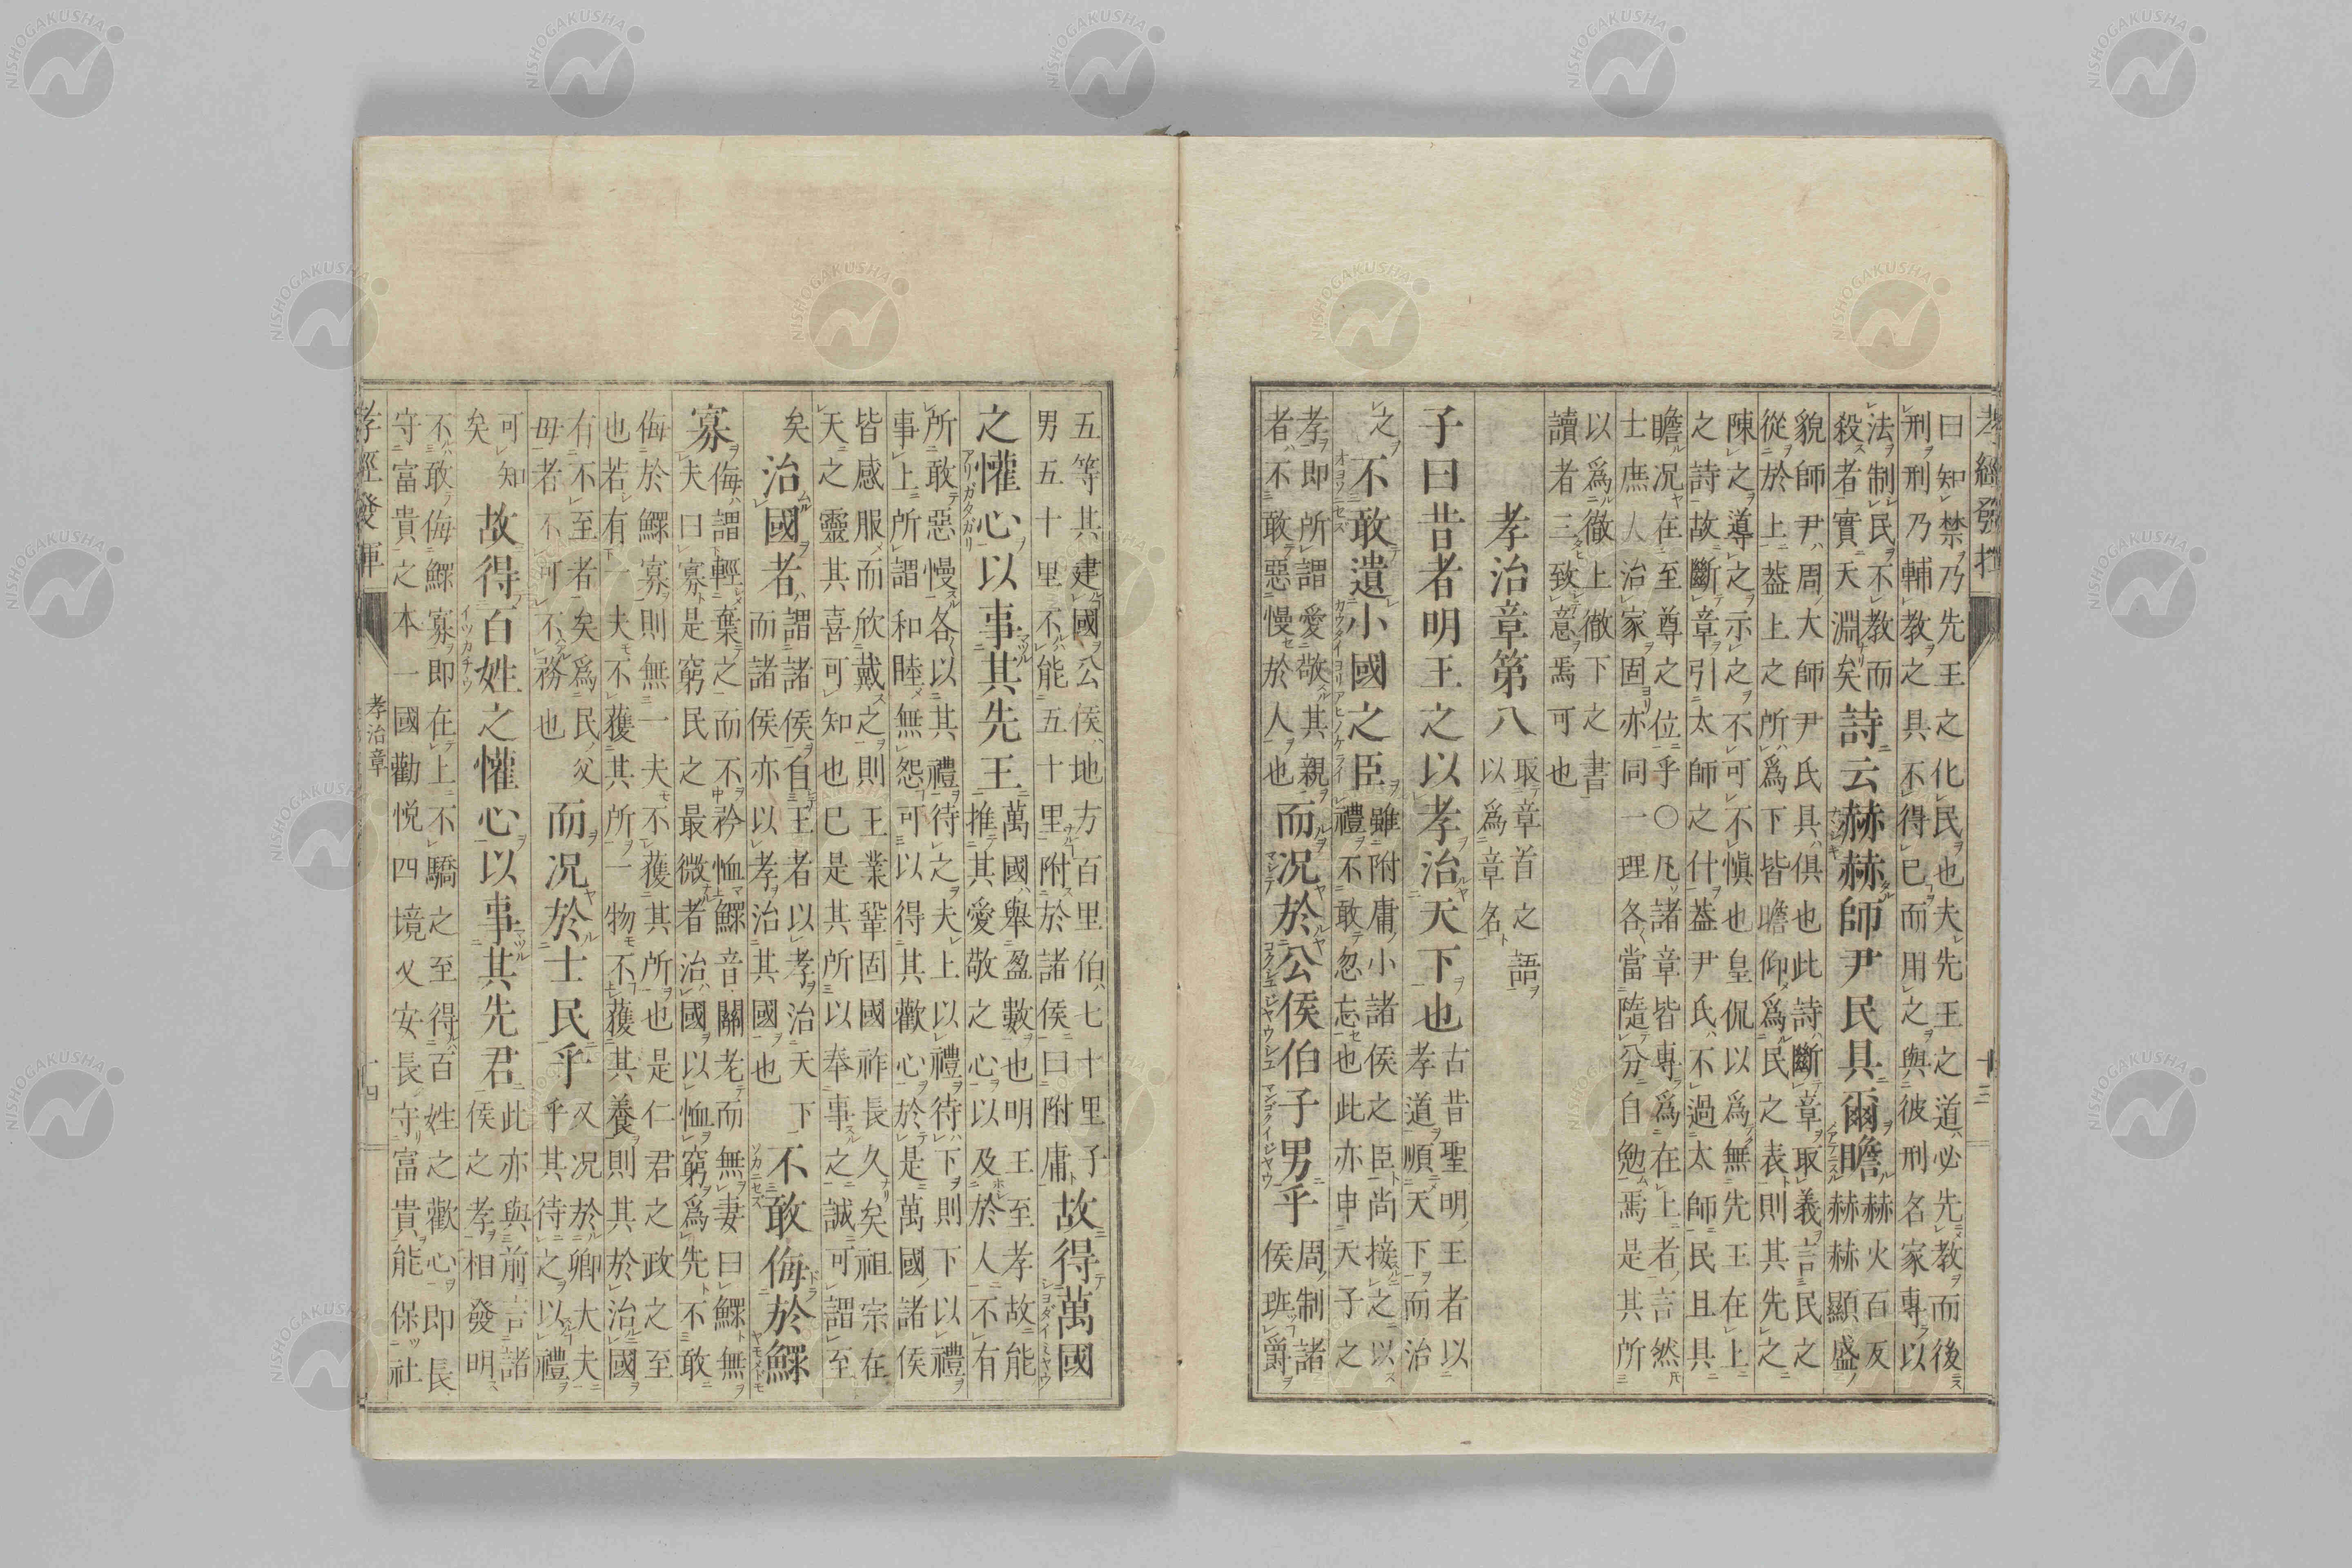 孝經發揮　十三
曰知禁乃先王之化民也夫先王之道必先教而後
刑刑乃輔教之具不得已而用之與彼刑名家專以
法制民不教而
殺者實天淵矣
詩云赫赫師尹民具爾瞻
赫火百反
赫赫顯盛
貌師尹周大師尹氏具俱也此詩斷章取義言民之
從於上葢上之所爲下皆瞻仰爲民之表則其先之
陳之導之示之不可不愼也皇侃以爲無先王在上
之詩故斷章引太師之什葢尹氏不過太師民且具
瞻况在至尊之位乎○凡諸章皆專爲在上者言然
士庶人治家固亦同一理各當隨分自勉焉是其所
以爲徹上徹下之書
讀者三致意焉可也
孝治章第八
取章首之語
以爲章名
子曰昔者明王之以孝治天下也
古昔聖明王者以
孝道順天下而治
之
不敢遺小國之臣
雖附庸小諸侯之臣尚接之以
禮不敢忽忘也此亦申天子之
孝即所謂愛敬其親
者不敢惡慢於人也
而况於公侯伯子男乎
周制諸
侯班爵
五等其建國公侯地方百里伯七十里子
男五十里不能五十里附於諸侯曰附庸
故得萬國
之懽心以事其先王
萬國舉盈數也明王至孝故能
推其愛敬之心以及於人不有
所敢惡慢各以其禮待之夫上以禮待下則下以禮
事上所謂和睦無怨可以得其歡心於是萬國諸侯
皆感服而欣戴之則王業鞏固國祚長久矣祖宗在
天之靈其喜可知也已是其所以奉事之誠可謂至
矣
治國者
謂諸侯自王者以孝治天下
而諸侯亦以孝治其國也
不敢侮於鰥
寡
侮謂輕棄之而不矜恤鰥音關老而無妻曰鰥無
夫曰寡是窮民之最微者治國以恤窮爲先不敢
侮於鰥寡則無一夫不獲其所也是仁君之政之至
也若有一夫不獲其所一物不獲其養則其於治國
有不至者矣爲民父
母者不可不務也
而况於士民乎
又况於卿大夫
乎其待之以禮
可知
矣
故得百姓之懽心以事其先君
此亦與前言諸
侯之孝相發明
不敢侮鰥寡即在上不驕之至得百姓之歡心即長
守富貴之本一國勸悅四境乂安長守富貴能保社
孝經發揮　孝治章　十四